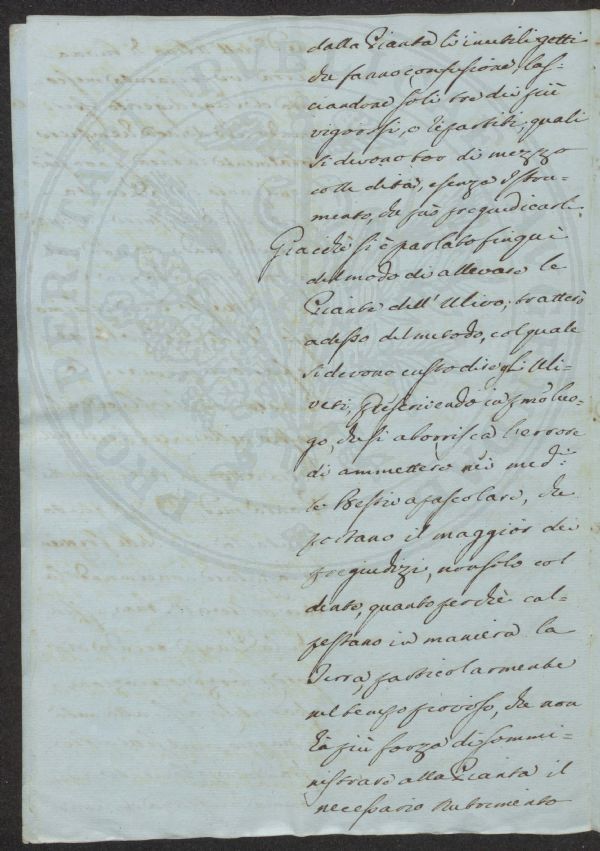 dalla Pianta li inutili getti
che fanno confusione, las=
ciandone soli tre dei più
vigorosi, e i quali
si devono tor di mezzo
colle dita, e senza Istru=
mento, che può pregiudicarli.
Giacchè si è parlato fin qui
del modo di allevare le
Piante dell' Ulivo; tratterò
adesso del metodo, col quale
si devono custodire gli Uli=
veti, prescrivendo in pmo luo=
go, che si aborrisca l'errore
di ammettere nei med:
le Bestie a pascolare, che
portano il maggior dei
pregiudizi, non solo col
dente, quanto perchè cal=
pestano in maniera la
Terra, particolarmente
nel tempo piovoso, che non
hà più forza di sommi=
nistrare alla Pianta il
necessario nutrimento
PROSPERITATI PUBLICAE